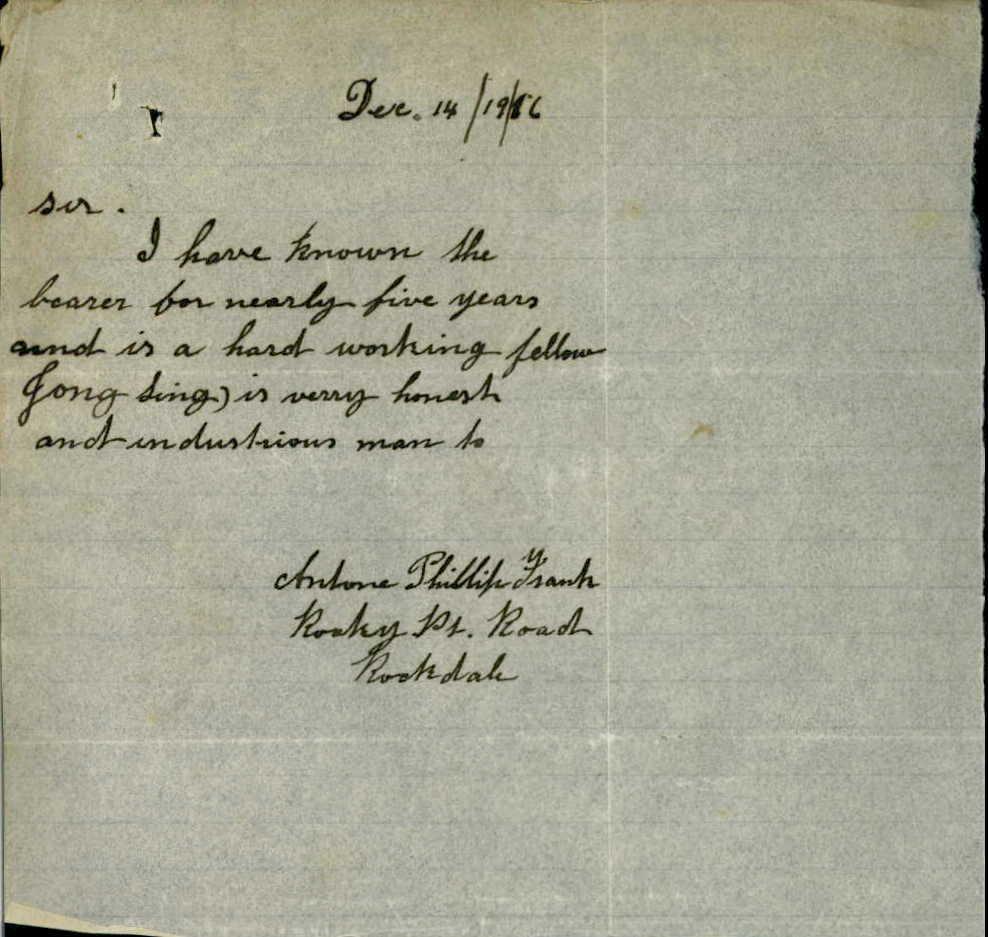 Dec. 14/1916
sir.
I have known the
bearer for nearly five years
and is a hard working fellow
Jong Sing) is verry honest
and industrious man to
Antone Phillip Frank
Rocky Pt. Road
Rockdale